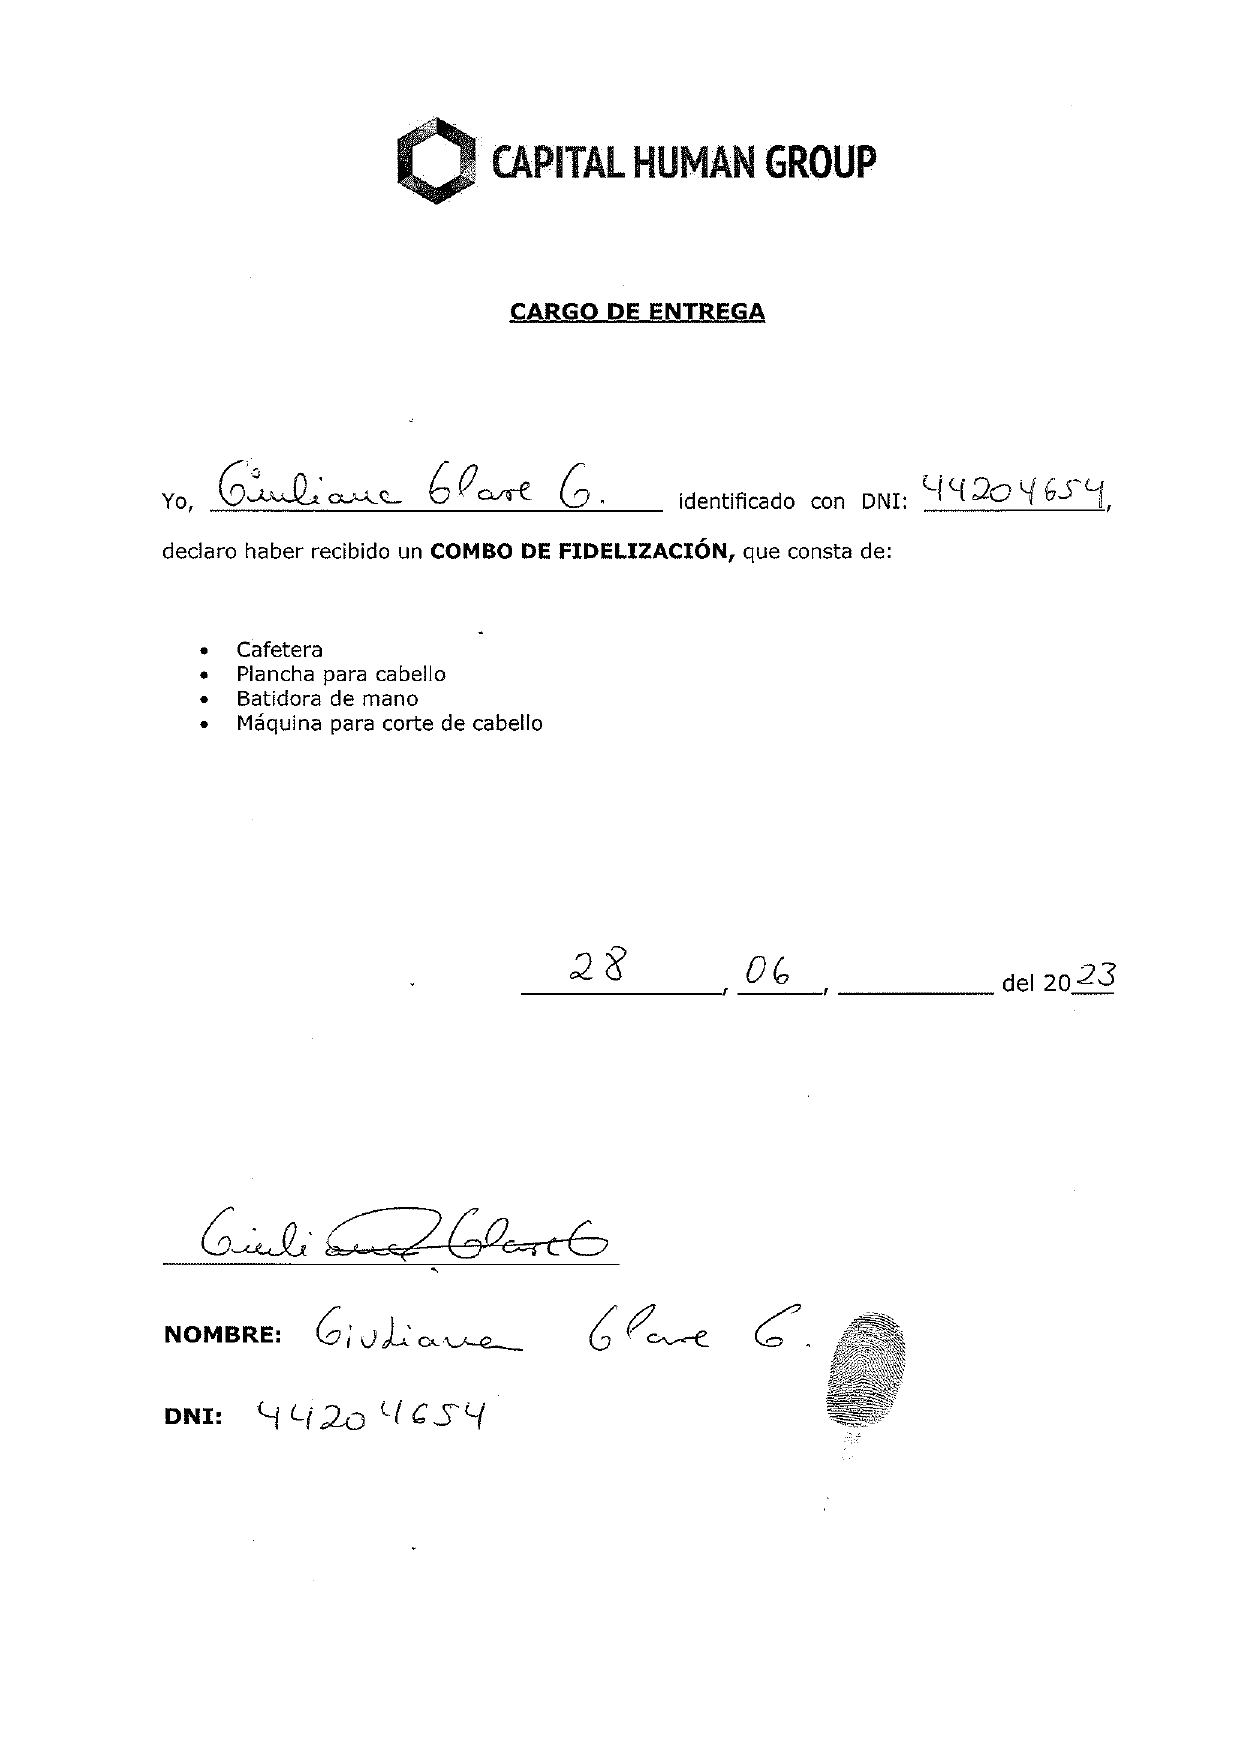 CAPITAL HUMAN GROUP
CARGO DE ENTREGA
Yo, Giuliana Glave G. identificado con DNI: 44204654,
declaro haber recibido un COMBO DE FIDELIZACIÓN, que consta de:
• Cafetera
• Plancha para cabello
• Batidora de mano
• Máquina para corte de cabello
28, 06, del 2023
Giuliana Glave G
NOMBRE: Giuliana Glave G.
DNI: 44204654